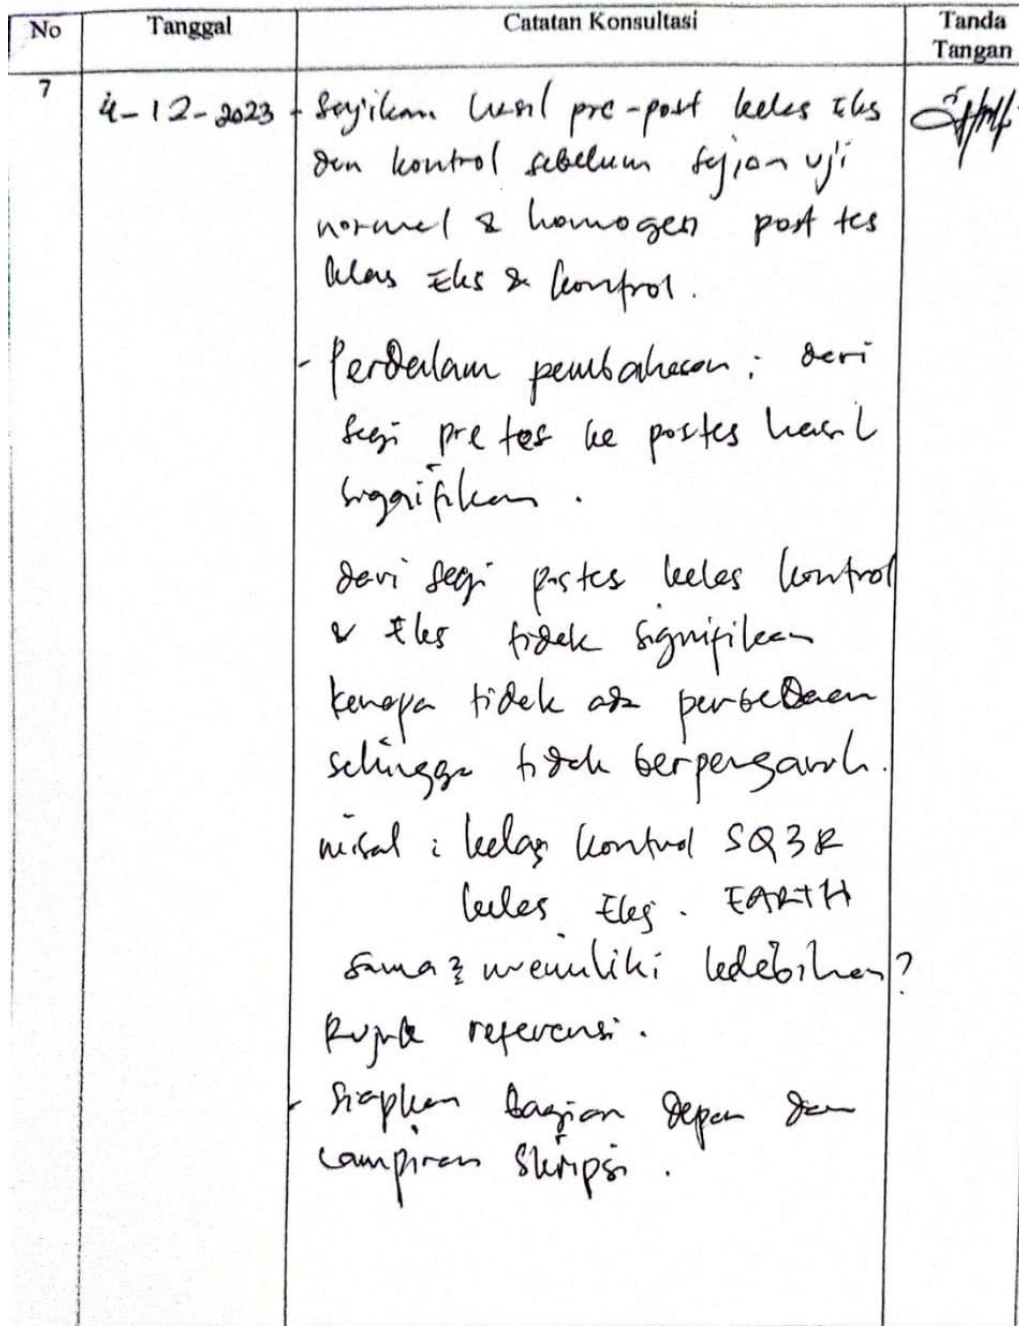 No Tanggal Catatan Konsultasi Tanda Tangan
7
4-12-2023 - Sajikan hasil pre-post kelas Eks
dan kontrol sebelum sajian uji
normal & homogen post tes
klas Eks & kontrol.
- Perdalam pembahasan : dari
segi pre tes ke postes hasil
signifikan.
dari segi postes kelas kontrol
& Eks tidak signifikan
kenapa tidak ada perbedaan
sehingga tidak berpengaruh.
misal : kelas kontrol SQ3R
kelas Eks. EARTH
sama2 memiliki kelebihan?
Rujuk referensi.
- Siapkan bagian depan dan
lampiran skripsi.